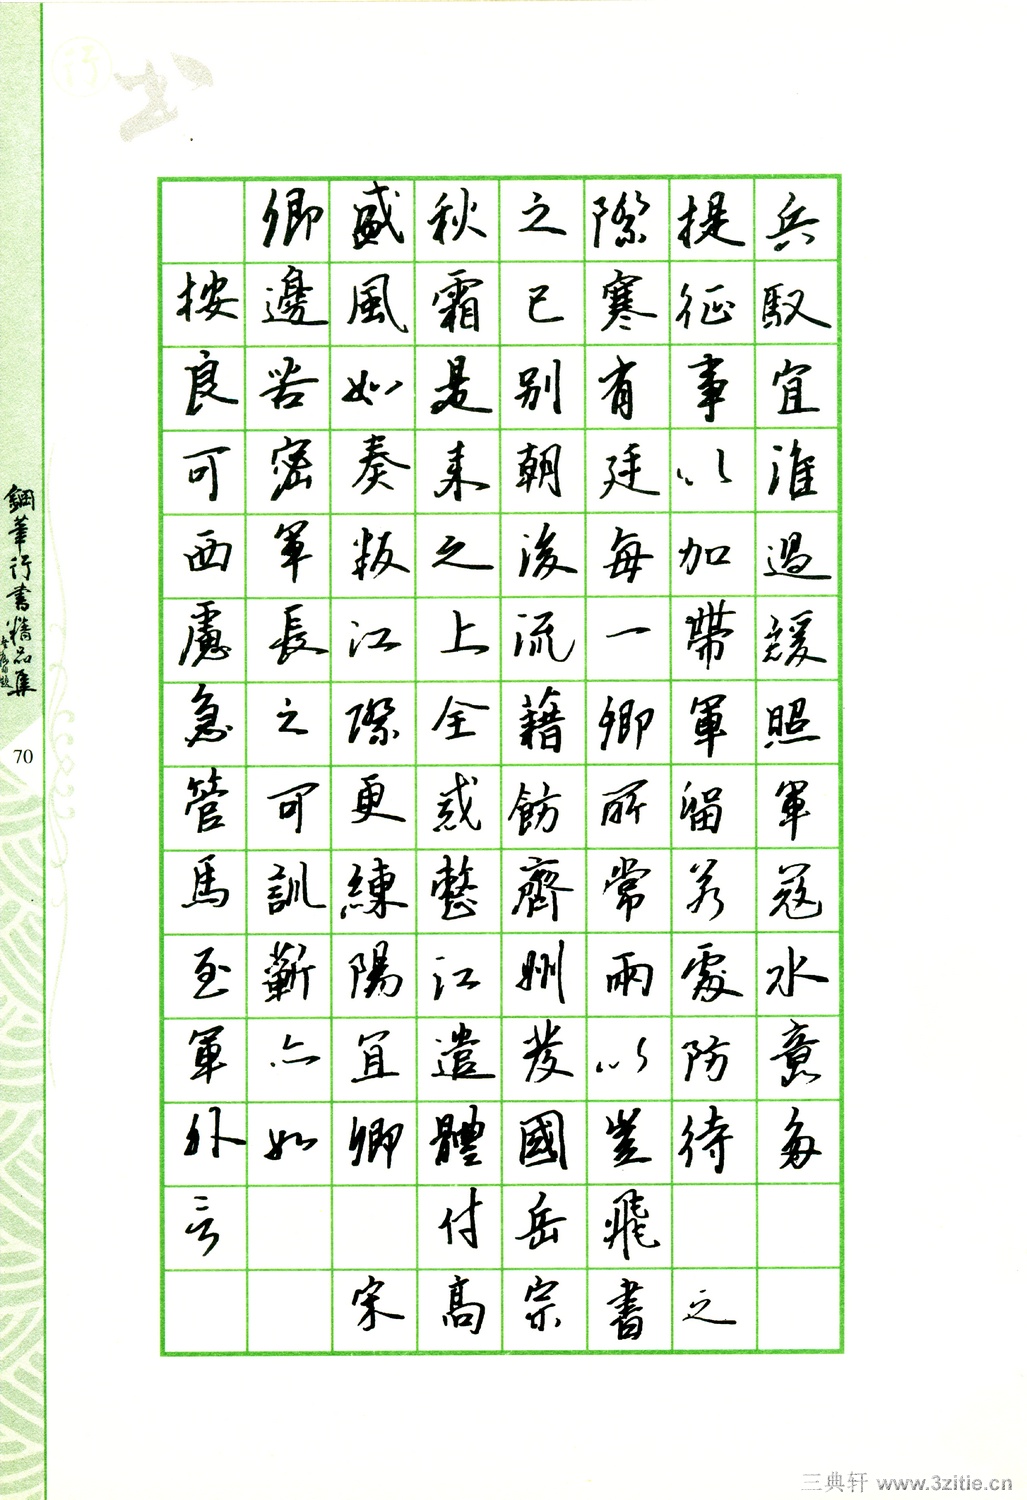 行书
卿盛秋之際提兵
按邊風霜已寒征馭
良苦如是別有事宜
可密奏來朝廷以淮
西軍叛之後每加過
慮長江上流一帶緩
急之際全藉卿軍照
管可更戒飭所留軍
馬訓練整齊常若寇
至蘄陽江州兩處水
軍亦宜遣發以防意
外如卿體國豈待多
言 付岳飛
宋高宗書之
鋼筆行書精品集
70
三典轩 www.3zitie.cn